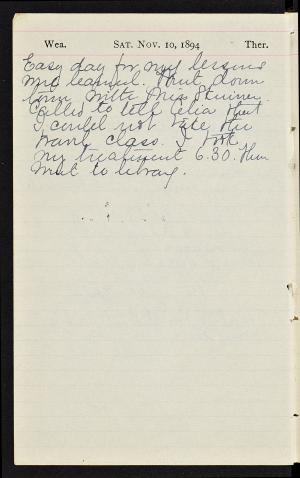 Wea. SAT. NOV. 10, 1894 Ther.
Easy day for my lessons
were learned. Went down
town with Miss Skinner.
Called to tell Celia that
I could not take the
class. I took
my treatment 6.30. Then
went to library.